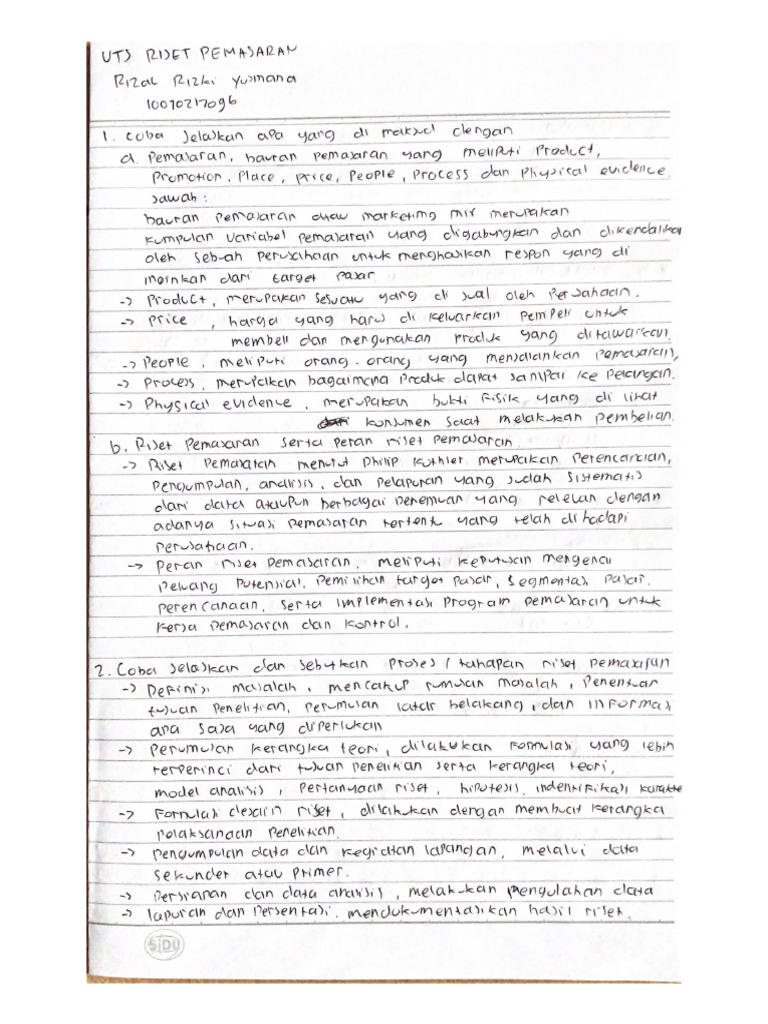 UTS RISET PEMASARAN
Rizal Rizki Yusmana
10070217096
1. Coba Jelaskan apa yang di maksud dengan
a. Pemasaran, bauran pemasaran yang meliputi Product,
Promotion, Place, price, People, Process dan Physical evidence
Jawab:
bauran pemasaran atau marketing mix merupakan
kumpulan variabel pemasaran yang digabungkan dan dikendalikan
oleh sebuah perusahaan untuk menghasilkan respon yang di
inginkan dari target pasar.
-> Product, merupakan sesuatu yang di jual oleh Perusahaan.
-> Price, harga yang harus di keluarkan pempeli untuk
membeli dan mengunakan produk yang ditawarkan.
-> People, meliputi orang-orang yang menjalankan pemasaran,
-> Process, merupakan bagaimana Produk dapat sampai ke Pelangan.
-> Physical evidence, merupakan bukti fisik yang di lihat
konsumen saat melakukan pembelian.
b. Riset Pemasaran serta peran riset pemasaran.
-> Riset Pemasatan menurut Philip Kothler merupakan Perencanaan,
Pengumpulan, analisis, dan pelapuran yang sudah sistematis
dari data ataupun berbagai penemuan yang relevan dengan
adanya situasi pemasaran tertentu yang telah dihadapi
perusahaan.
-> Peran riset pemasaran, meliputi keputusan mengenai
peluang Potensial, Pemilihan target pasar, segmentasi Pasar,
perencanaan, serta implementasi program pemasaran untuk
kerja pemasaran dan kontrol.
2. Coba Jelaskan dan sebutkan Proses / tahapan riset pemasaran
-> Definisi masalah, mencakup rumusan masalah, Penentuan
tujuan Penelitian, Perumusan latar belakang, dan INFormasi
apa saja yang diperlukan
-> Perumusan kerangka teori, dilakukan formulasi yang lebih
terperinci dari tujuan penelitian serta kerangka teori,
model analisis, Pertanyaan riset, hipotesis, indentifikasi karakte
-> Formulasi desain riset, dilakukan dengan membuat kerangka
pelaksanaan Penelitian.
-> Pengumpulan data dan kegiatan lapangan, melalui data
sekunder atau Primer.
-> Persiapan dan data analisis, melakukan pengulahan data
-> laporan dan Persentasi, mendukumentasikan hasil riset.
SIDU